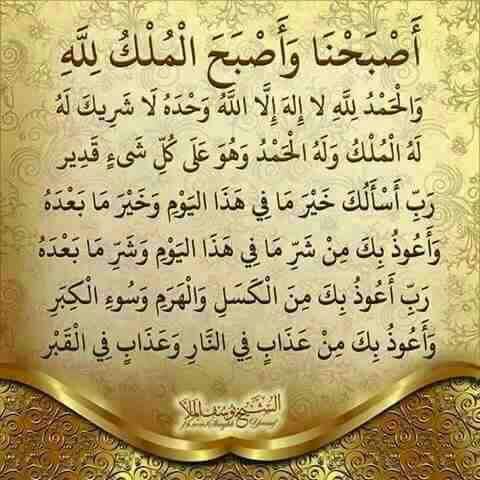 أَصْبَحْنَا وَأَصْبَحَ الْمُلْكُ لِلَّهِ
وَالْحَمْدُ لِلَّهِ لَا إِلٰهَ إِلَّا اللَّهُ وَحْدَهُ لَا شَرِيكَ لَهُ
لَهُ الْمُلْكُ وَلَهُ الْحَمْدُ وَهُوَ عَلَى كُلِّ شَيءٍ قَدِير
رَبِّ أَسْأَلُكَ خَيْرَ مَا فِي هَذَا اليَوْمِ وَخَيْرَ مَا بَعْدَهُ
وَأَعُوذُ بِكَ مِنْ شَرِّ مَا فِي هَذَا اليَوْمِ وَشَرِّ مَا بَعْدَهُ
رَبِّ أَعُوذُ بِكَ مِنَ الْكَسَلِ وَالْهَرَمِ وَسُوءِ الْكِبَرِ
وَأَعُوذُ بِكَ مِنْ عَذَابٍ فِي النَّارِ وَعَذَابٍ فِي الْقَبْر
الشيخ يوسف الملا